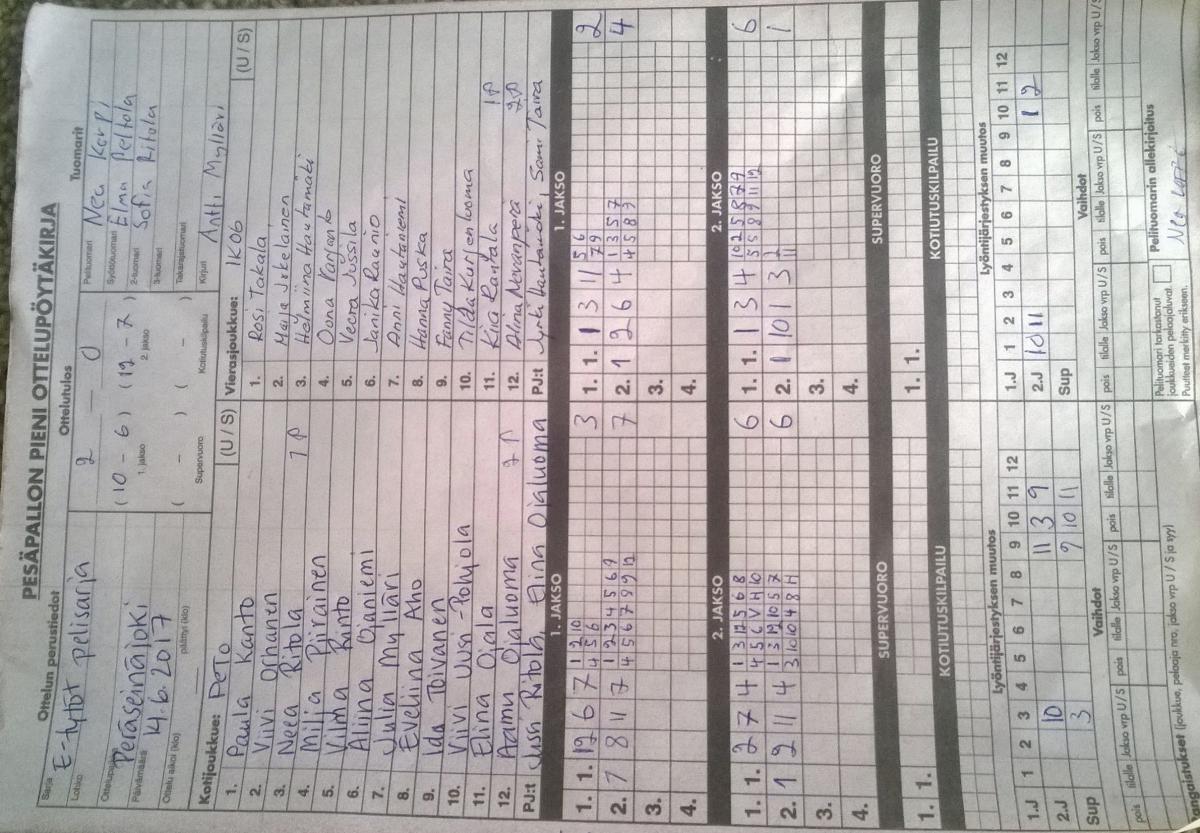 PESÄPALLON PIENI OTTELUPÖYTÄKIRJA
Ottelun perustiedot
Sarja
E-tytöt pelisarja
Lohko
Ottelupaikka
Peräseinäjoki
Päivämäärä
14.6.2017
Ottelu alkoi (klo)
päättyi (klo)
Ottelutulos
2 0
(10 - 6) (12 - 7)
1. jakso 2. jakso
( - ) ( - )
Supervuoro Kotiutuskilpailu
Tuomarit
Pelituomari Nea Korpi
Syöttötuomari Elma Peltola
2-tuomari Sofia Ritola
3-tuomari
Takarajatuomari
Kirjuri Antti Mylläri
Kotijoukkue: PeTo (U / S)
1. Paula Kanto
2. Viivi Orhanen
3. Neea Ritola 1P
4. Milja Piirainen
5. Vilma Kanto
6. Aliina Ojaniemi
7. Julla Mylläri
8. Eveliina Aho
9. Ida Toivanen
10. Viivi Uusi-Pohjola
11. Elina Ojala
12. Aamu Ojaluoma 2P
PJ:t Jussi Ritola, Elina Ojaluoma
Vierasjoukkue: IKO6 (U / S)
1. Rosi Takala
2. Maija Jokelainen
3. Helmiina Hautamäki
4. Oona Parkano
5. Veera Jussila
6. Janika Raunio
7. Anni Hautaniemi
8. Hanna Puska
9. Fanny Taira
10. Tilda Kurjenluoma
11. Kiia Rantala 1P
12. Alina Nevanperä 2P
PJ:t Jyrki Hautamäki, Sami Taira
1. JAKSO
1. 1. 12 6 7 1 2 10 3
4 5 6
2. 7 8 11 7 1 2 3 4 5 6 9 7
4 5 6 7 9 9 12
3.
4.
1. JAKSO
1. 1. 1 3 11 5 6 2
7 9
2. 1 2 6 4 1 3 5 7 4
4 5 8 9
3.
4.
2. JAKSO
1. 1. 2 7 4 1 3 12 5 6 8 6
4 5 6 V H 10
2. 1 2 11 4 1 3 12 10 5 7 6
3 10 10 4 8 11
3.
4.
2. JAKSO
1. 1. 1 3 4 10 2 5 8 7 9 6
5 5 8 9 11 12
2. 1 10 1 3 1 1
11
3.
4.
SUPERVUORO
1. 1.
SUPERVUORO
1. 1.
KOTIUTUSKILPAILU
KOTIUTUSKILPAILU
Lyöntijärjestyksen muutos
1 2 3 4 5 6 7 8 9 10 11 12
1.J 10 11 3 9
2.J 3 9 10 11
Sup
Lyöntijärjestyksen muutos
1 2 3 4 5 6 7 8 9 10 11 12
1.J
2.J 10 11 1 2
Sup
Vaihdot
pois tilalle Jakso vrp U/S pois tilalle Jakso vrp U/S pois tilalle Jakso vrp U/S
Vaihdot
pois tilalle Jakso vrp U/S pois tilalle Jakso vrp U/S pois tilalle Jakso vrp U/S
Rangaistukset (joukkue, pelaaja nro, jakso, vrp, U / S ja syy)
Pelituomari tarkastanut
joukkueiden pelaajaluvat.
Puutteet merkitty erikseen.
Pelituomarin allekirjoitus
Nea Korpi